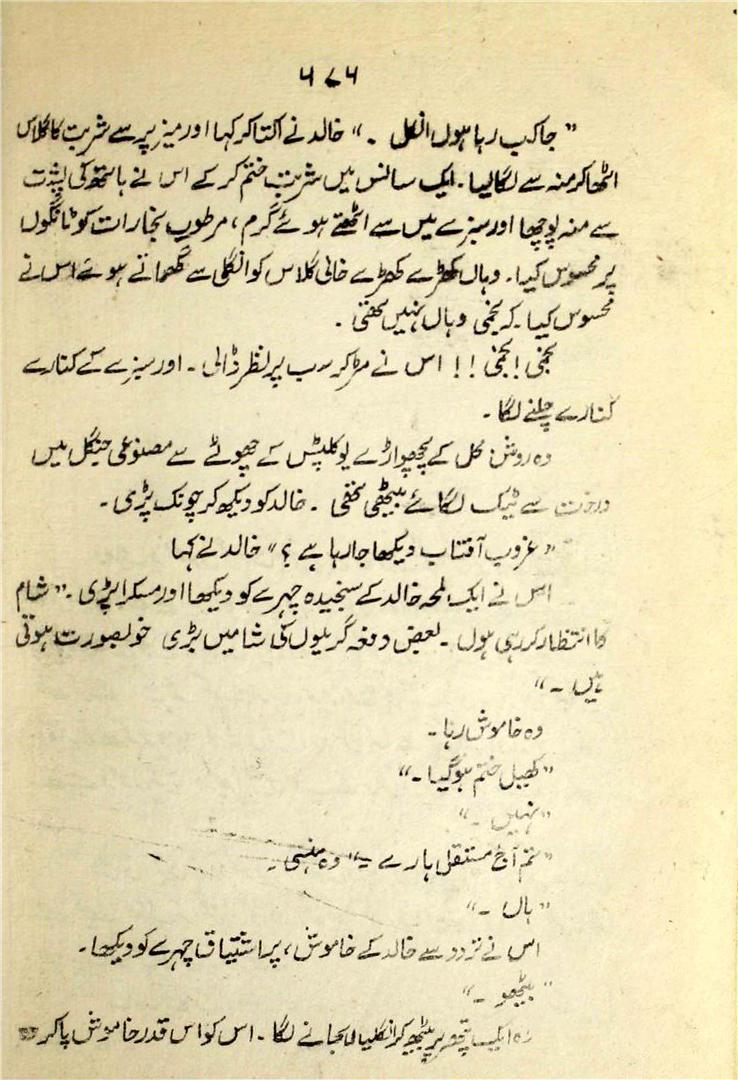 ۵۷۶
”جا کب رہا ہوں انکل ۔“ خالد نے اکتا کر کہا اور میز پر سے شربت کا گلاس
اٹھا کر منہ سے لگا لیا۔ ایک سانس میں شربت ختم کر کے اس نے ہاتھ کی پشت
سے منہ پوچھا اور سبزے میں سے اٹھتے ہوئے گرم، مرطوب بخارات کو ٹانگوں
پر محسوس کیا۔ وہاں کھڑے کھڑے خالی گلاس کو انگلی سے گھماتے ہوئے اس نے
محسوس کیا۔ کہ نجمی وہاں نہیں تھی ۔
نجمی! نجمی!! اس نے مڑ کر سب پر نظر ڈالی ۔ اور سبزے کے کنارے
کنارے چلنے لگا ۔
وہ روشن محل کے پچھواڑے یوکلپٹس کے چھوٹے سے مصنوعی جنگل میں
درخت سے ٹیک لگائے بیٹھی تھی ۔ خالد کو دیکھ کر چونک پڑی ۔
”غروب آفتاب دیکھا جا رہا ہے ؟“ خالد نے کہا
اس نے ایک لمحہ خالد کے سنجیدہ چہرے کو دیکھا اور مسکرا پڑی ۔”شام
کا انتظار کر رہی ہوں ۔ بعض دفعہ گرمیوں کی شامیں بڑی خوبصورت ہوتی
ہیں ۔“
وہ خاموش رہا ۔
”کھیل ختم ہو گیا ۔“
”نہیں ۔“
”تم آج مستقل ہارے ۔“ وہ ہنسی ۔
”ہاں ۔“
اس نے تردد سے خالد کے خاموش، پر اشتیاق چہرے کو دیکھا ۔
”بیٹھو ۔“
وہ ایک پتھر پر بیٹھ کر انگلیاں بجانے لگا ۔ اس کو اس قدر خاموش پا کر وہ